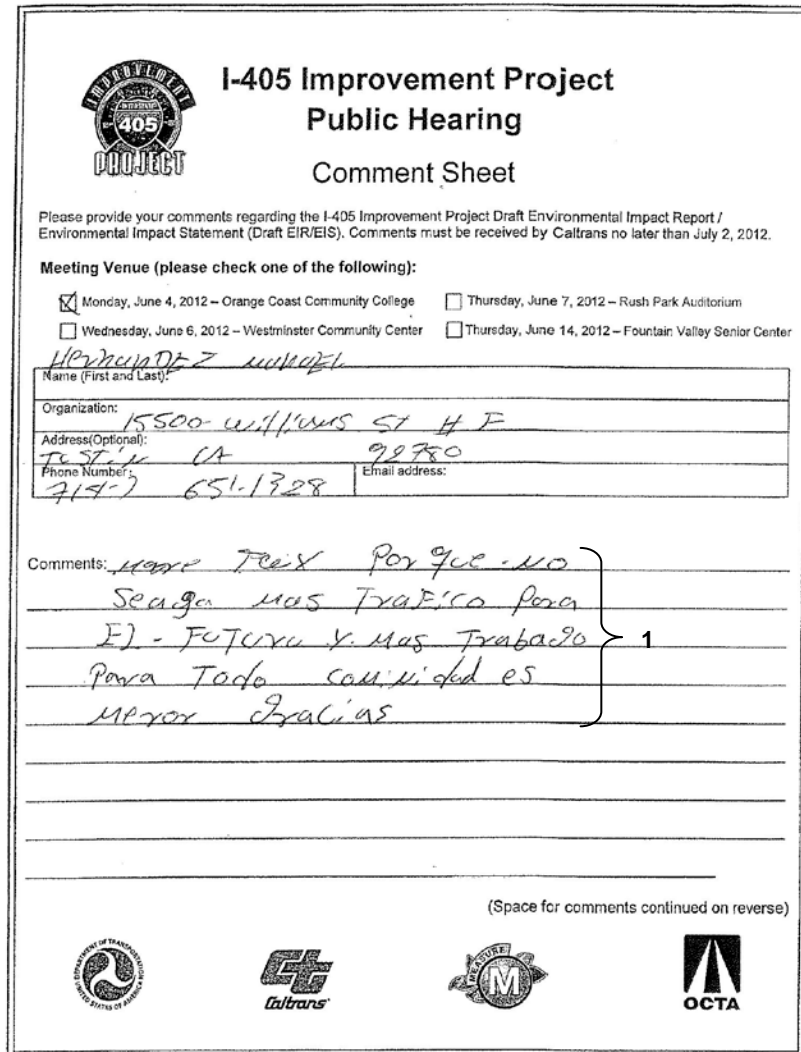 IMPROVEMENT
INTERSTATE
405
PROJECT
I-405 Improvement Project
Public Hearing
Comment Sheet
Please provide your comments regarding the I-405 Improvement Project Draft Environmental Impact Report /
Environmental Impact Statement (Draft EIR/EIS). Comments must be received by Caltrans no later than July 2, 2012.
Meeting Venue (please check one of the following):
Monday, June 4, 2012 – Orange Coast Community College
Thursday, June 7, 2012 – Rush Park Auditorium
Wednesday, June 6, 2012 – Westminster Community Center
Thursday, June 14, 2012 – Fountain Valley Senior Center
HernanDEZ
Name (First and Last):
Organization:
15500 St # F
Address(Optional):
TUSTIN CA 92780
Phone Number:
714-) 651-1328
Email address:
Comments: Porque-no
Seaga mas TraFico Para
El - FuTuro y mas Trabado
Para Todo comunidad es
meror Gracias
1
(Space for comments continued on reverse)
DEPARTMENT OF TRANSPORTATION
UNITED STATES OF AMERICA
Caltrans
MEASURE
M
OCTA